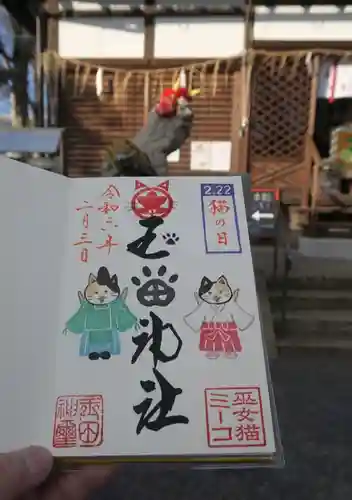 2.22
猫の日
玉田神社
令和六年
二月三日
巫女猫
ミーコ
玉田
神璽